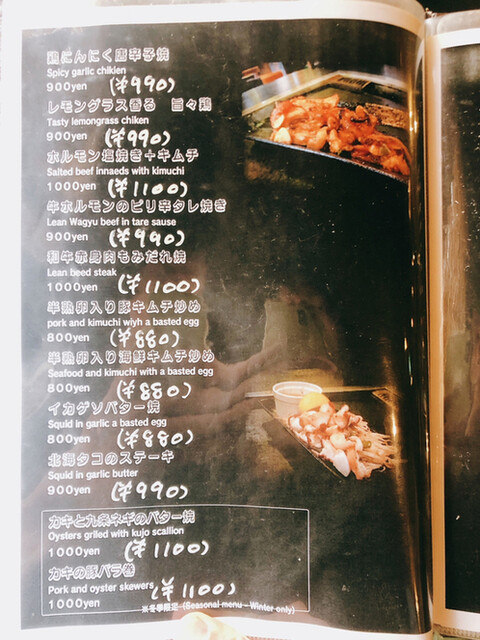 鶏にんにく唐辛子焼
Spicy garlic chikien
900yen (¥990)
レモングラス香る 旨々鶏
Tasty lemongrass chiken
900yen (¥990)
ホルモン塩焼き+キムチ
Salted beef innaeds with kimuchi
1000yen (¥1100)
牛ホルモンのピリ辛タレ焼き
Lean Wagyu beef in tare sause
900yen (¥990)
和牛赤身肉もみだれ焼
Lean beed steak
1000yen (¥1100)
半熟卵入り豚キムチ炒め
pork and kimuchi wiyh a basted egg
800yen (¥880)
半熟卵入り海鮮キムチ炒め
Seafood and kimuchi with a basted egg
800yen (¥880)
イカゲソバター焼
Squid in garlic a basted egg
800yen (¥880)
北海タコのステーキ
Squid in garlic butter
900yen (¥990)
カキと九条ネギのバター焼
Oysters griled with kujo scallion
1000yen (¥1100)
カキの豚バラ巻
Pork and oyster skewers
1000yen (¥1100)
※冬季限定 (Seasonal menu - Winter only)